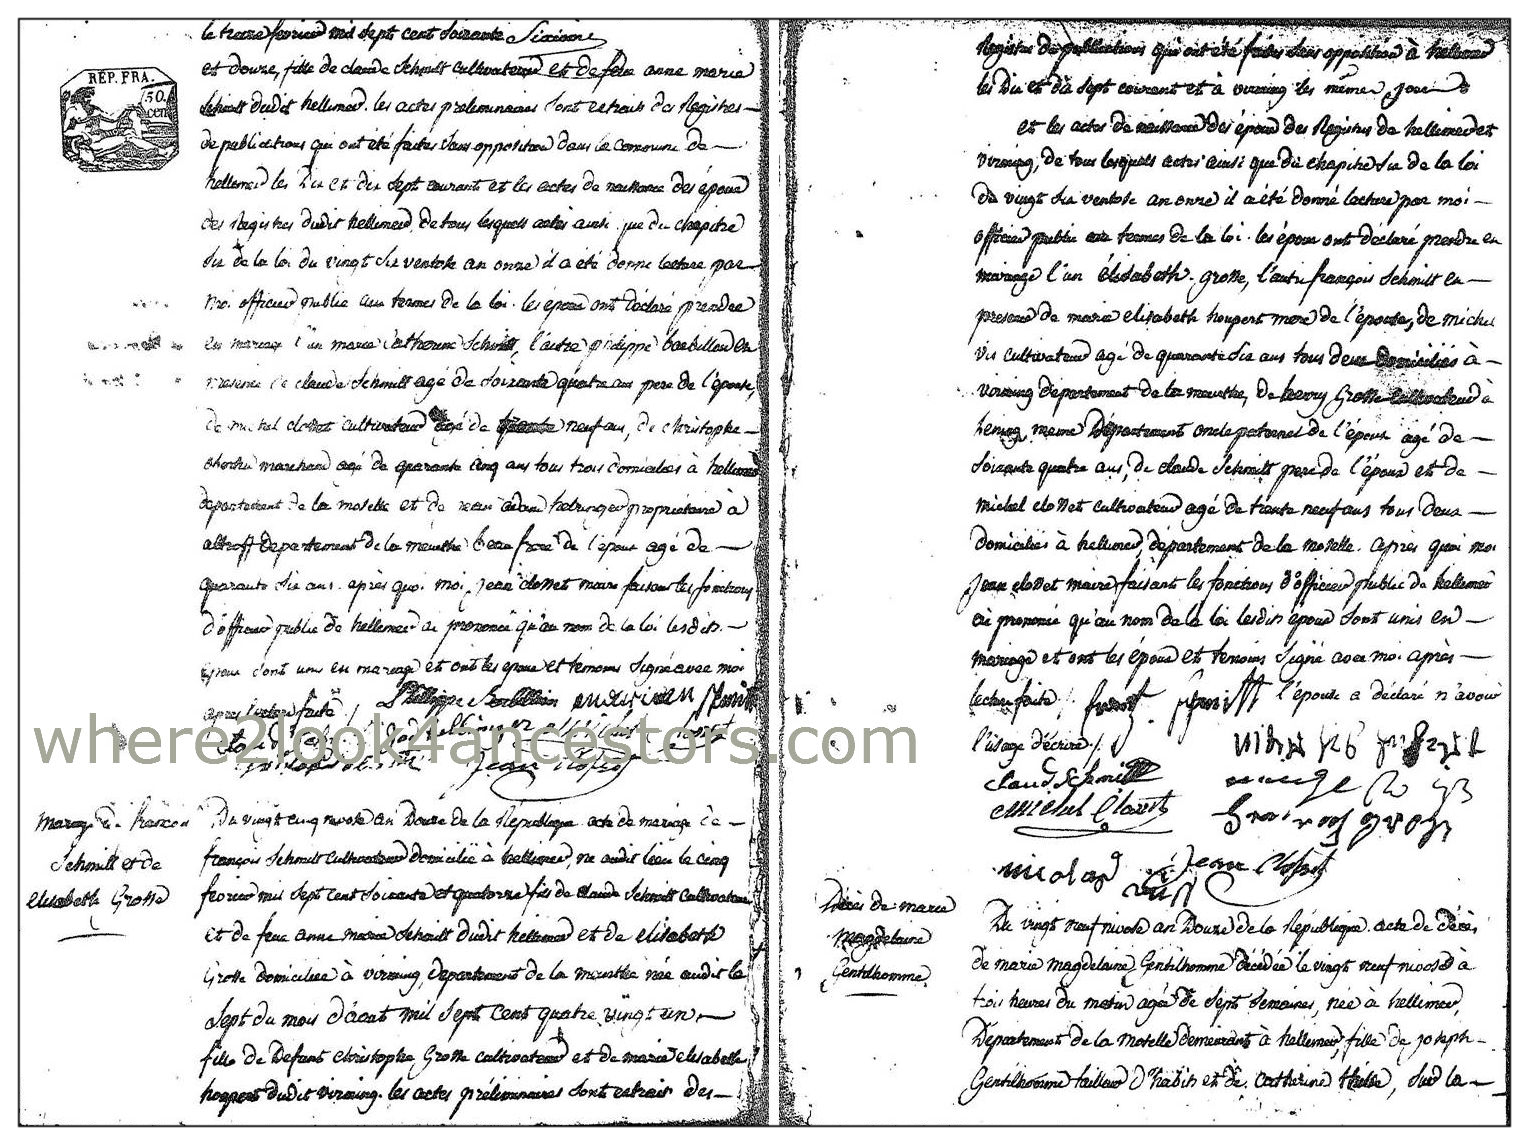 le treize fevrier mil sept cent soixante
et douze, fille de claude Schmitt cultivateur et de feue anne marie
Schmitt dudit hellimer. les actes preliminaires sont extraits des Registres
de publications qui ont été faites sans opposition dans la commune de
hellimer les Dix et dix sept courant et les actes de naissance des époux
des Registres dudit hellimer, de tous lesquels actes ainsi que du chapitre
six de la loi du vingt six ventose an onze il a été donné lecture par
moi officier public aux termes de la loi. les époux ont déclaré prendre
en mariage l'un marie Catherine Schmitt, l'autre philippe barbillon en
presence de claude Schmitt agé de soixante quatre ans pere de l'épouse,
de michel clottet cultivateur agé de trente neuf ans, de christophe
marchand agé de quarante cinq ans tous trois domiciliés à hellimer
departement de la moselle et de adam propriétaire à
altroff departement de la meurthe beau frere de l'époux agé de
quarante six ans. après quoi moi, jean clottet maire faisant les fonctions
d'officier public de hellimer ai prononcé qu'au nom de la loi lesdits
époux sont unis en mariage et ont les époux et temoins signé avec moi
après lecture faite
RÉP. FRA.
50.
cen
mariage de françois
Schmitt et de
elisabeth Grosse
Du vingt cinq nivose an Douze de la République acte de mariage de
françois Schmitt cultivateur domicilié à hellimer, né audit lieu le cinq
fevrier mil sept cent soixante et quatorze fils de claude Schmitt cultivateur
et de feue anne marie Schmitt dudit hellimer et de elisabeth
Grosse domiciliée à virming, departement de la meurthe née audit le
sept du mois d'aout mil sept cent quatre vingt un,
fille de Defunt christophe Grosse cultivateur et de marie elisabethe
houpert dudit virming. les actes préliminaires sont extraits des
Registres de publications qui ont été faites sans opposition à hellimer
les Dix et dix sept courant et à virming les même jour
et les actes de naissance des époux des Registres de hellimer et
virming, de tous lesquels actes ainsi que du chapitre six de la loi
du vingt six ventose an onze il a été donné lecture par moi
officier public aux termes de la loi. les époux ont déclaré prendre en
mariage l'un élisabeth Grosse, l'autre françois Schmitt en
presence de marie elisabeth houpert mere de l'épouse, de michel
vis cultivateur agé de quarante six ans tous deux domiciliés à
virming departement de la meurthe, de Grosse cultivateur à
hening, meme Département oncle paternel de l'épouse agé de
soixante quatre ans, de claude Schmitt pere de l'époux et de
michel clottet cultivateur agé de trente neuf ans tous deux
domiciliés à hellimer, département de la moselle. après quoi moi
jean clottet maire faisant les fonctions d'officier public de hellimer
ai prononcé qu'au nom de la loi lesdits époux sont unis en
mariage et ont les époux et temoins signé avec moi après
lecture faite, l'épouse a déclaré n'avoir
l'usage d'écrire
claud Schmitt
michel Clottet
nicolas
jean Clottet
where2look4ancestors.com
Décès de marie
magdelaine
Gentilhomme
Du vingt neuf nivose an Douze de la République acte de Décès
de marie magdelaine Gentilhomme décédée le vingt neuf nivose à
trois heures du matin agée de sept semaines, née à hellimer,
Département de la moselle demeurant à hellimer, fille de joseph
Gentilhomme tailleur d'habits et de catherine sur la